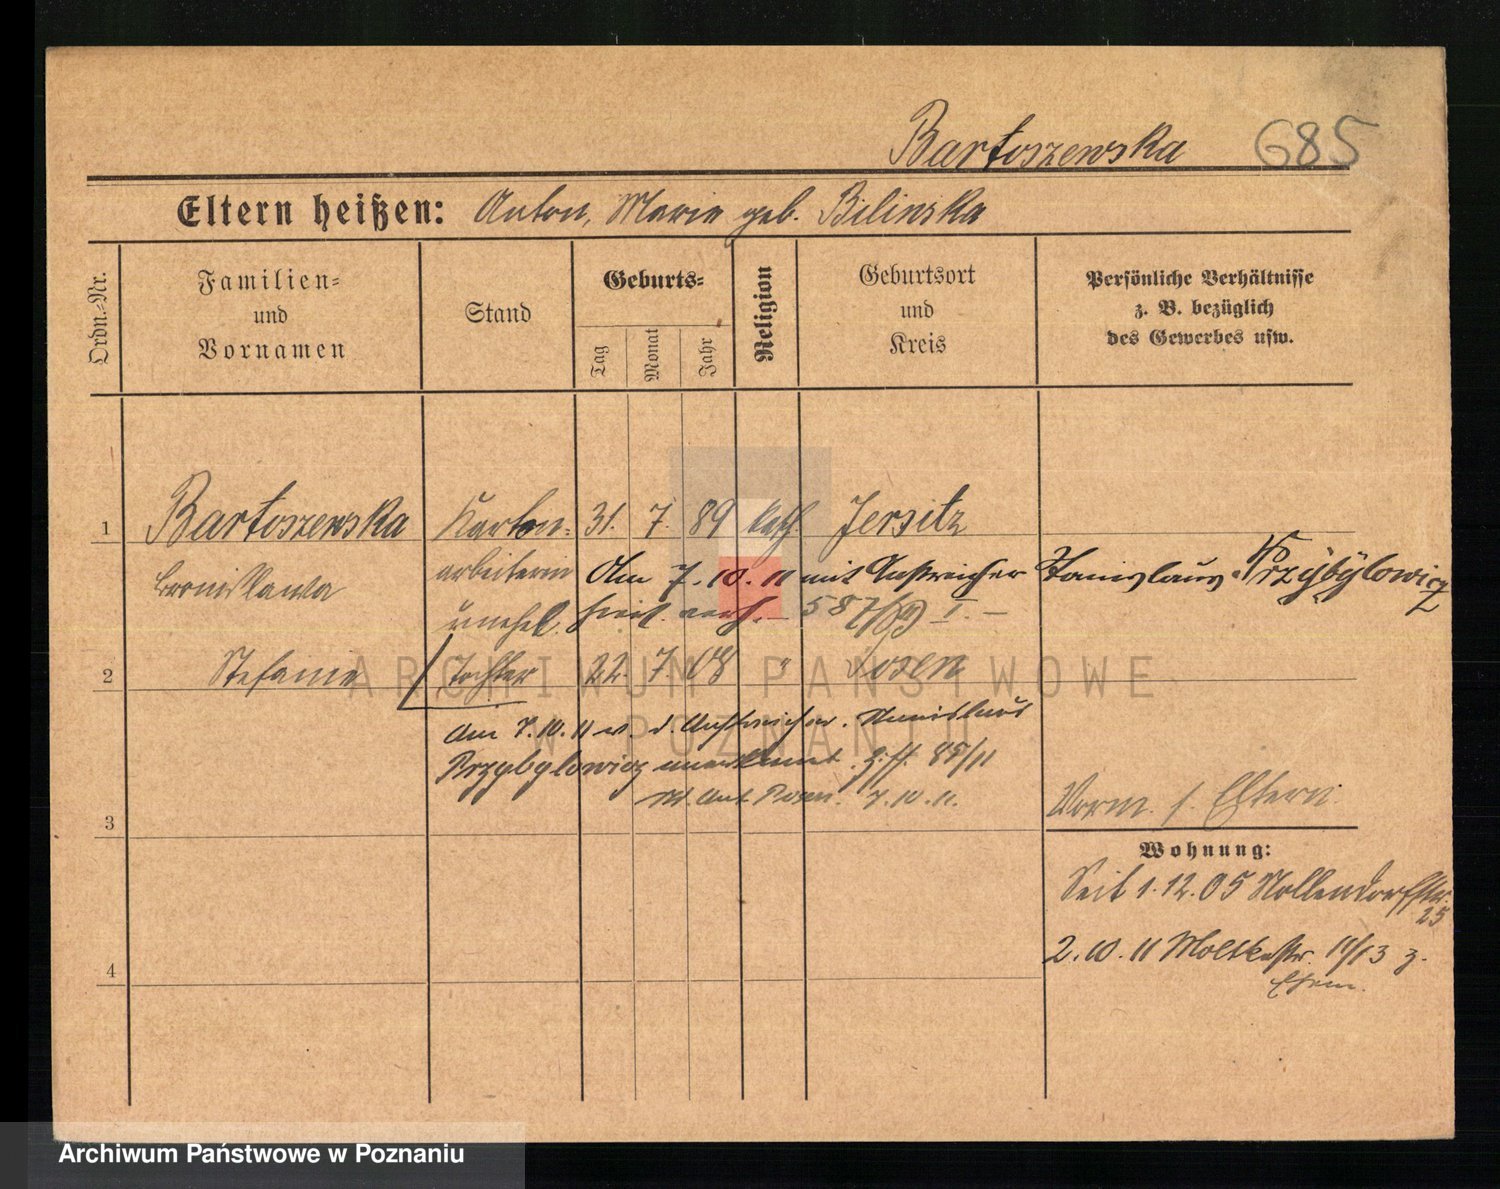 Bartoszewska 685
Eltern heißen: Anton, Maria geb. Bilinska
Ordn.-Nr.
Familien-
und
Vornamen
Stand
Geburts-
Tag
Monat
Jahr
Religion
Geburtsort
und
Kreis
Persönliche Verhältnisse
z. B. bezüglich
des Gewerbes usw.
1 Bartoszewska Karton- 31. 7. 89 kath. Jersitz
Bronislawa arbeiterin Am 7.10.11 mit Anstreicher Stanislaus Przybylowicz
unehel. hier verh. 587/69 I. —
2 Stefanie Tochter 22. 7. 08 " Posen
Am 7.10.11 v. d. Anstreicher Stanislaus
Przybylowicz anerkannt.
St. Amt Posen. 7.10.11.
3
Vorm. s. Eltern.
Wohnung:
Seit 1.12.05 Nollendorfstr.
25
4
2.10.11 Moltkestr. 11/13 z.
Ehem.
ARCHIWUM PAŃSTWOWE
W POZNANIU
Archiwum Państwowe w Poznaniu